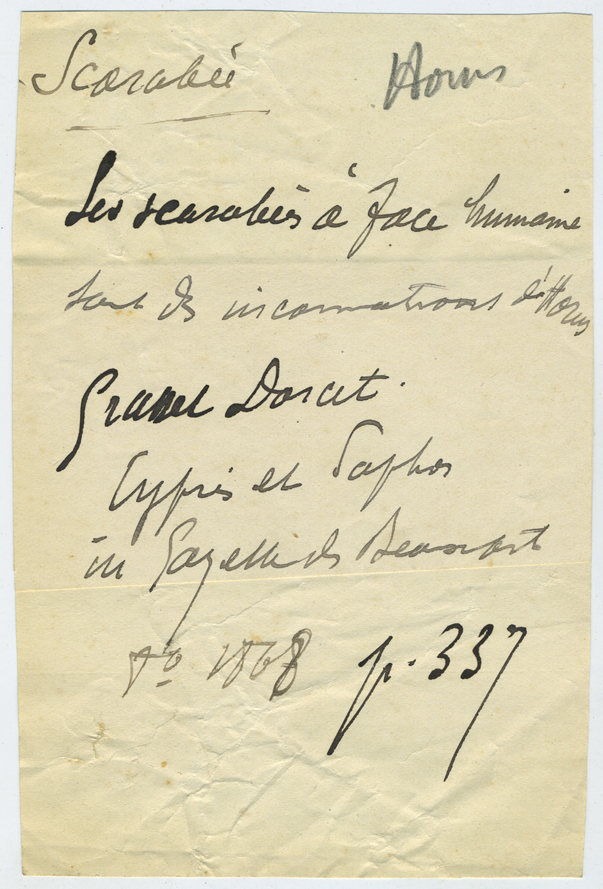 Scarabée
Horus
Les scarabées à face humaine
sont des incarnations d'Horus
Dorcet.
Cypris et Paphos
in Gazette des Beaux arts
1868 p. 337